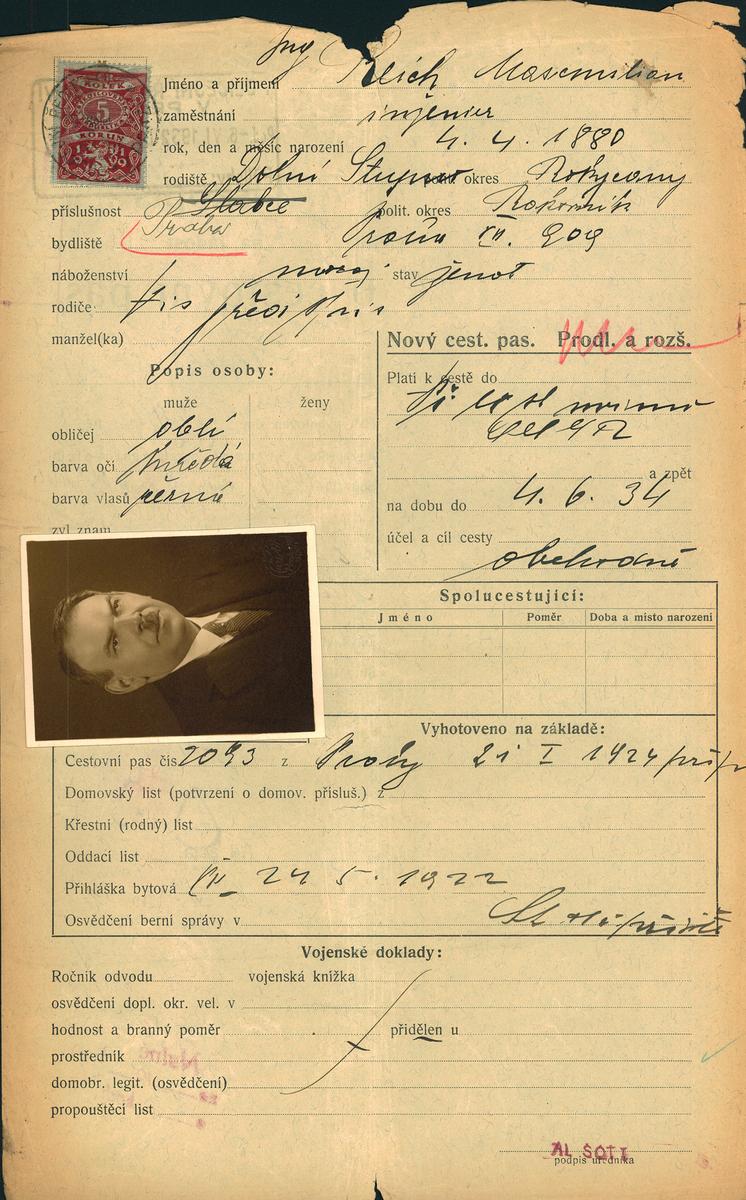 Ing Reich Maxmilian
Jméno a příjmení
zaměstnání inženier
rok, den a měsíc narození 4. 4. 1880
rodiště Dolní Stupno polit. okres Rokycany
příslušnost Slabce polit. okres Rakovník
Praha
bydliště Praha XII. 909
náboženství stav ženat
rodiče
manžel(ka)
Nový cest. pas. Prodl. a rozš.
Popis osoby:
Platí k cestě do
muže ženy
obličej oblý
barva očí hnědá
a zpět
barva vlasů černé
na dobu do 4. 6. 34
zvl. znam.
účel a cíl cesty
obchodně
Spolucestující:
Jméno Poměr Doba a místo narození
Vyhotoveno na základě:
Cestovní pas čís 2093 z Prahy 21 I 1924
Domovský list (potvrzení o domov. přísluš.) z
Křestní (rodný) list
Oddací list
Přihláška bytová 24 5. 1922
Osvědčení berní správy v
Vojenské doklady:
Ročník odvodu vojenská knížka
osvědčení dopl. okr. vel. v
hodnost a branný poměr přidělen u
prostředník
domobr. legit. (osvědčení)
propouštěcí list
podpis úředníka
KOLEK
5
KORUN